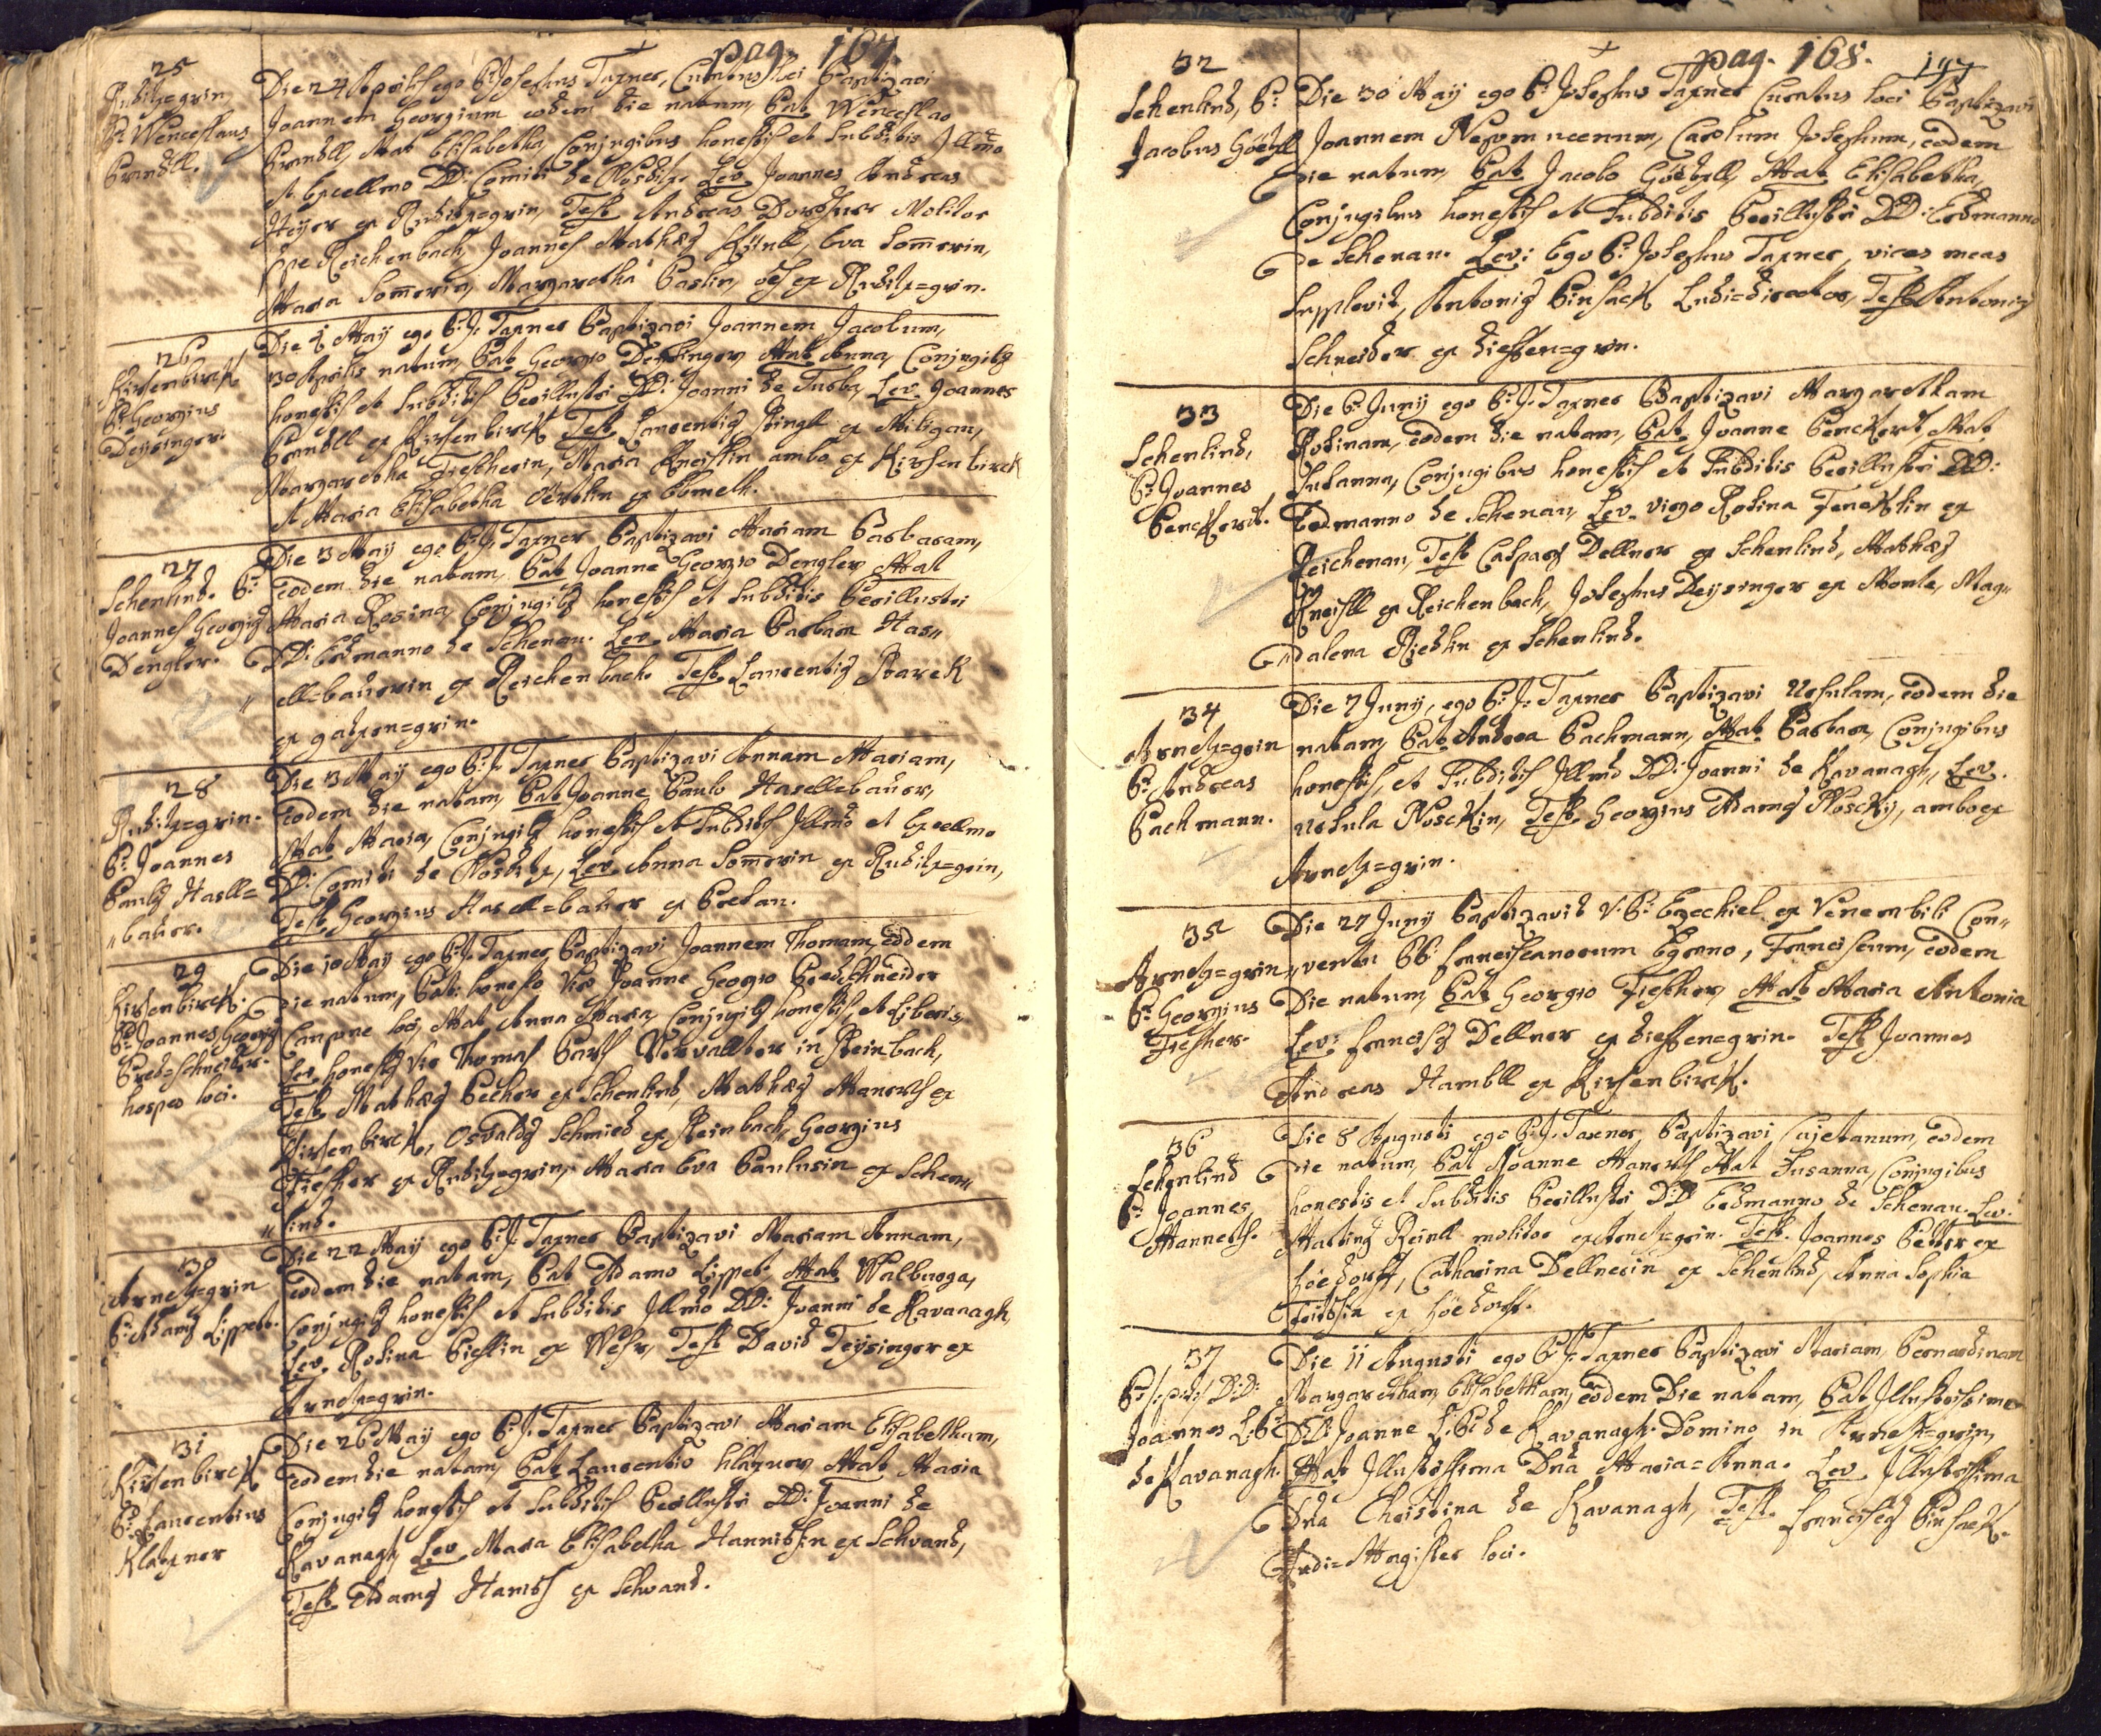 pag. 167.
25
Ruditzgrin
P: Wenceslaus
Brandll.
Die 24 Aprilis ego P: Josephus Taxner, Curatus loci baptizavi
Joannem Georgium eodem die natum, Pat. Wenceslao
Brandll, Mat Elisabetha, Conjugibus honestis et subditis Illmo
et Excellmo DD: Comiti de Nostitz. Lev. Joannes Andreas
Heÿer ex Ruditzgrin, Test. Andreas Dorschner Molitor
Joannes Mathæs Künll, Eva Sommerin,
Maria Sommerin, Margaretha Paslin, ex Ruditz=grin.
26
Kirsenbirck
P: Georgius
Deÿsinger.
Die Maÿ ego P: J: Taxner baptizavi Joannem Jacobum,
30 Aprilis natum, Pat Georgio Deÿsinger, Mat Anna, Conjugibq
honestis et subditis Perillustri DD: Joanni de Turba, Lev. Joannes
Brandll ex Kirsenbirck Test. Laurentiq Ringll ex Miligau,
Margaretha Fiescherin, Maria Kneislin ambo ex Kirsenbirck
et Maria Elisabetha
27
Schenlind. P:
Joannes Georgiq
Dengler.
Die 3 Maÿ ego P: J: Taxner baptizavi Mariam Barbaram,
eodem die natam, Pat Joanne Georgio Dengler, Mat
Maria Rosina, Conjugibq honestis et subditis Perillustri
DD: Erdmanno de Schenau. Lev. Maria Barbara Has„
„ ell=bauerin ex Reichenbach. Test. Laurentiq Starck
ex gatzen=grin.
28
Ruditz=grin.
P: Joannes
Paulq Hasll=
„bauer.
Die 3 Maÿ ego P: J: Taxner baptizavi Annam Mariam,
eodem die natam, Pat Joanne Paulo Hasell=bauer,
Mat Maria, Conjugibq honestis et subditis Illmo et Excellmo
D: Comiti de Nostitz, Lev. Anna Sommerin ex Ruditz=grin,
Test. Georgius Hasell=bauer ex
29
Kirsenbirck.
P: Joannes Georgiq
Bredschneider.
hospes loci.
Die 10 Maÿ ego P: J: Taxner, baptizavi Joannem Thomam, eodem
Die natum, Pat. honesto Viro Joanne Georgio Bredschneider
Caupone loci, Mat. Anna Maria, Conjugibq honestis, et liberis,
Lev. honestq Vir Thomas Verwallter in Steinbach,
Test. Mathæq Pecher ex Schenlind, Mathæq Manerth ex
Kirsenbirck, Osvaldq Schmied ex Steinbach, Georgius
Fiescher ex Ruditzgrin, Maria Eva Paulusin ex Schen„
„lind.
30
Arnetz=grin
P: Adamq Lippert.
Die 22 Maÿ ego P: J: Taxner baptizavi Mariam Annam,
eodem die natam, Pat Adamo Lippert, Mat Walburga,
Conjugibq honestis et subditis Illmo DD: Joanni de Kavanagh,
Lev. Rosina ex Wehr, Test. David Teÿsinger ex
Arnetz=grin.
31
Kirsenbirck
P: Laurentius
Klatzner
Die 26 Maÿ ego P: J: Taxner baptizavi Mariam Elisabetham,
eodem die natam, Pat Laurentio Klatzner, Mat Maria
Conjugibq honestis et subditis Perillustri DD: Joanni de
Kavanagh, Lev. Maria Elisabetha Hannischin ex Schwand,
Test. Adamq Hanisch ex Schwand.
pag. 168. 197
32
Schenlind, P:
Jacobus Götzll
Die 30 Maÿ ego P: Josephus Taxner Curatus loci baptizavi
Joannem Nepomucenum, Carolum Josephum, eodem
Die natum, Pat. Jacobo Götzll, Mat. Elisabetha,
Conjugibus honestis et subditis Perillustri DD: Erdmanno
de Schenau. Lev: Ego P: Josephus Taxner, vices meas
supplevit, Antoniq Pinsack Ludi=director, Test. Antoniq
Schneider ex dieffen=grin.
33
Schenlind,
P: Joannes
Penckert.
Die 6 Junÿ ego P: J: Taxner Baptizavi Margaretham
Rosinam, eodem die natam, Pat. Joanne Penckert, Mat
Susanna, Conjugibus honestis et subditis Perillustri DD:
Erdmanno de Schenau, Lev. virgo Rosina Fencklin ex
Reichenau, Test. Casparq Dellner ex Schenlind, Mathæq
Kneissll ex Reichenbach, Josephus Deÿsinger ex Monle, Mag„
„dalena Riedlin ex Schenlind.
34
Arnetz=grin
P: Andreas
Bachmann.
Die 7 Junÿ, ego P: J: Taxner baptizavi Ursulam, eodem die
natam, Pat. Andrea Bachmann, Mat. Barbara, Conjugibus
honestis, et subditis Illmo DD: Joanni de Kavanagh, Lev.
Ursula Nosckin, Test. Georgius Adamq Noscky, ambo ex
Arnetz=grin.
35
Arnetz=grin
P: Georgius
Fiescher.
Die 27 Junÿ baptizavit V: P: Ezechiel ex Venerabili Con„
„ventu PP Franciscanorum Egrano, Franciscum, eodem
Die natum, Pat. Georgio Fiescher, Mat. Maria Antonia
Lev: Franciscq Dellner ex dieffen=grin. Test Joannes
Andreas Hambll ex Kirsenbirck.
36
Schenlind
P: Joannes
Manerth.
Die 8 Augusti ego P: J: Taxner baptizavi Cajetanum, eodem
Die natum, Pat Joanne Manerth Mat Susanna, Conjugibus
honestis et subditis Perillustri DD Erdmanno de Schenau. Lev.
Martinq Reinll molitor ex Arnetz=grin. Test. Joannes ex
Hoedorff, Catharina Dellnerin ex Schenlind, Anna Sophia
ex Hoedorff.
37
P: DD:
Joannes L: B:
de Kavanagh.
Die 11 Augusti ego P: J: Taxner baptizavi Mariam, Bernardinam
Margaretham, Elisabetham, eodem Die natam, Pat Illustrissimo
DD: Joanne L: B: de Kavanagh. Domino in Arnetz=grin,
Mat. Illustrissima Dna Maria=Anna. Lev. Illustrissima
Dna Christina de Kavanagh, Test. Franciscq Pinsack.
Ludi=Magister loci.